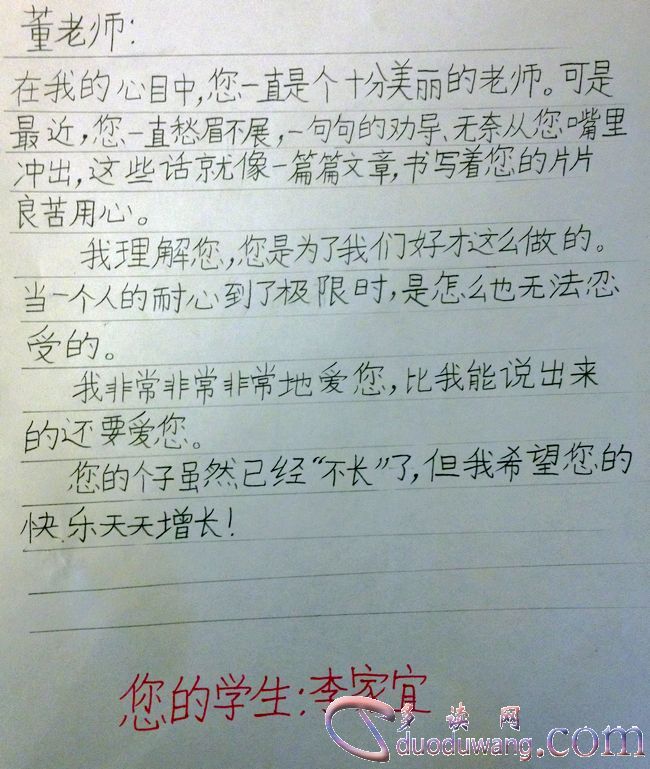 董老师:
在我的心目中,您一直是个十分美丽的老师。可是
最近,您一直愁眉不展,一句句的劝导、无奈从您嘴里
冲出,这些话就像一篇篇文章,书写着您的片片
良苦用心。
我理解您,您是为了我们好才这么做的。
当一个人的耐心到了极限时,是怎么也无法忍
受的。
我非常非常非常地爱您,比我能说出来
的还要爱您。
您的个子虽然已经“不长”了,但我希望您的
快乐天天增长!
您的学生:李家宜
多读网
duoduwang.com